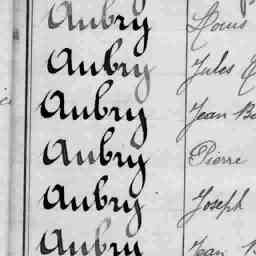 Aubry Louis
Aubry Jules
Aubry Jean
Aubry Pierre
Aubry Joseph
Aubry Jean